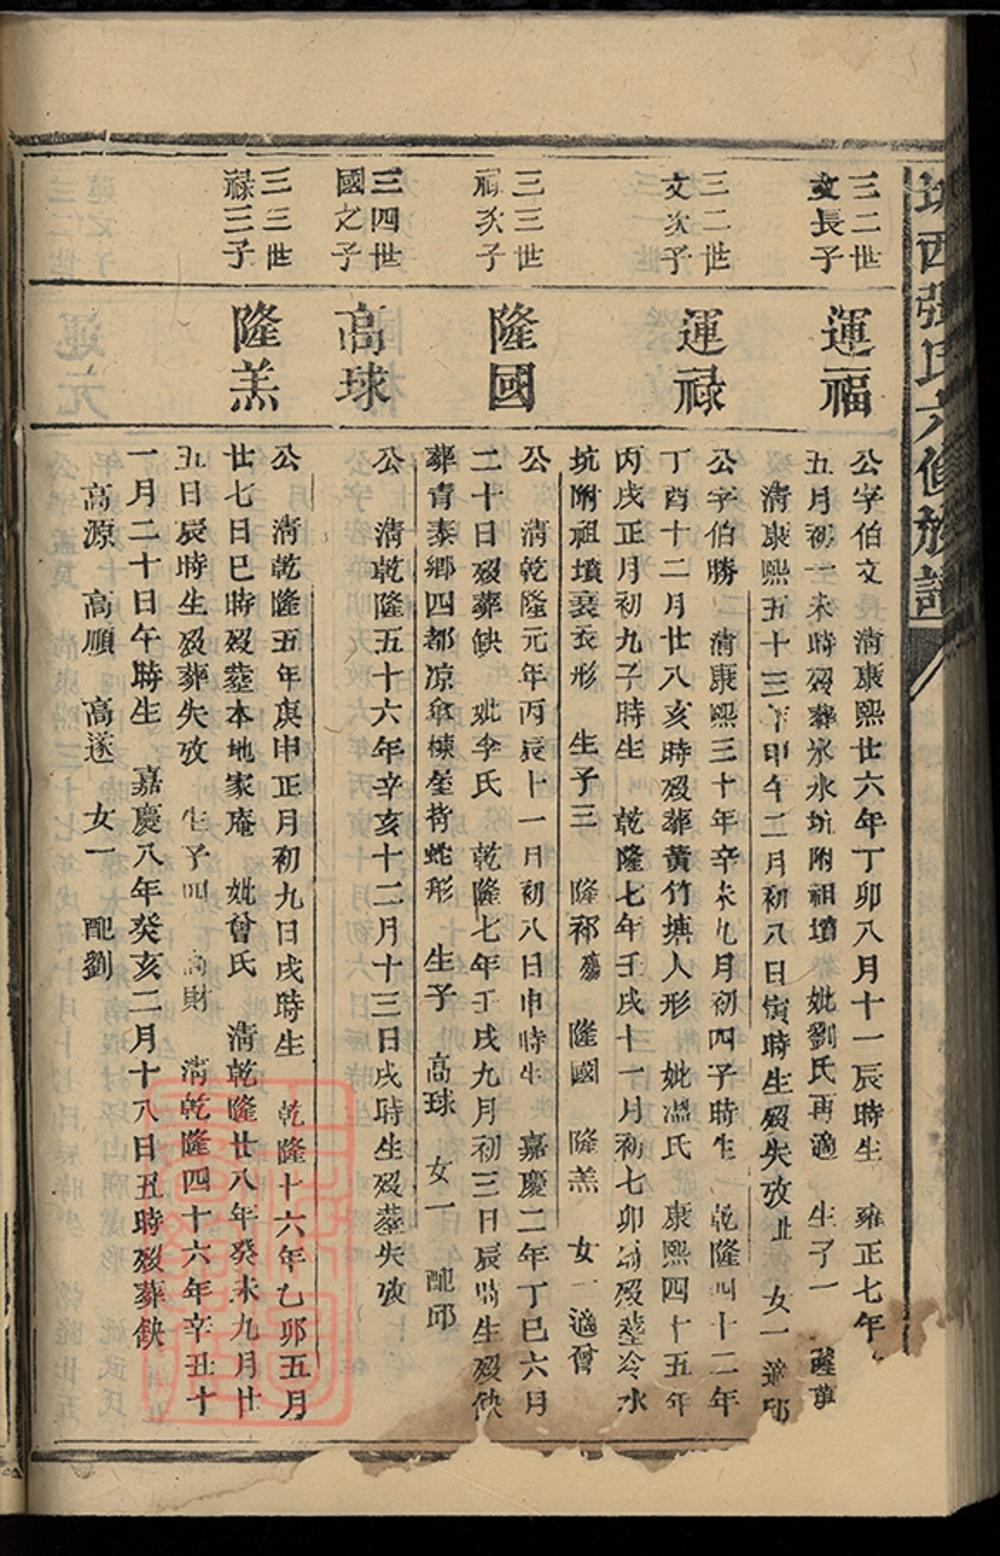 西張氏六修族譜
三二世
文長子
運福
公字伯文 清康熙廿六年丁卯八月十一辰時生 雍正七年
五月初一未時歿葬氷水坑附祖墳 妣劉氏再適 生子一 隆
清康熙五十三年甲午二月初八日寅時生歿失攷止 女一適邱
三二世
文次子
運祿
公字伯勝 清康熙三十年辛未九月初四子時生 乾隆四十二年
丁酉十二月廿八亥時歿葬黃竹塘人形 妣溫氏 康熙四十五年
丙戌正月初九子時生 乾隆七年壬戌十一月初七卯時歿塟冷水
坑附祖墳裘衣形 生子三 隆祁殤 隆國 隆羔 女一適曾
三三世
祿次子
隆國
公 清乾隆元年丙辰十一月初八日申時生 嘉慶二年丁巳六月
二十日歿葬缺 妣李氏 乾隆七年壬戌九月初三日辰時生歿缺
葬青泰鄉四都凉傘棟塋背蛇形 生子 高球 女一 配邱
三四世
國之子
高球
公 清乾隆五十六年辛亥十二月十三日戌時生歿塟失攷
三三世
祿三子
隆羔
公 清乾隆五年庚申正月初九日戌時生 乾隆十六年乙卯五月
廿七日巳時歿塟本地家庵 妣曾氏 清乾隆廿八年癸未九月廿
五日辰時生歿葬失攷 生子四 高財 清乾隆四十六年辛丑十
一月二十日午時生 嘉慶八年癸亥二月十八日丑時歿葬缺
高源 高順 高遂 女一 配劉